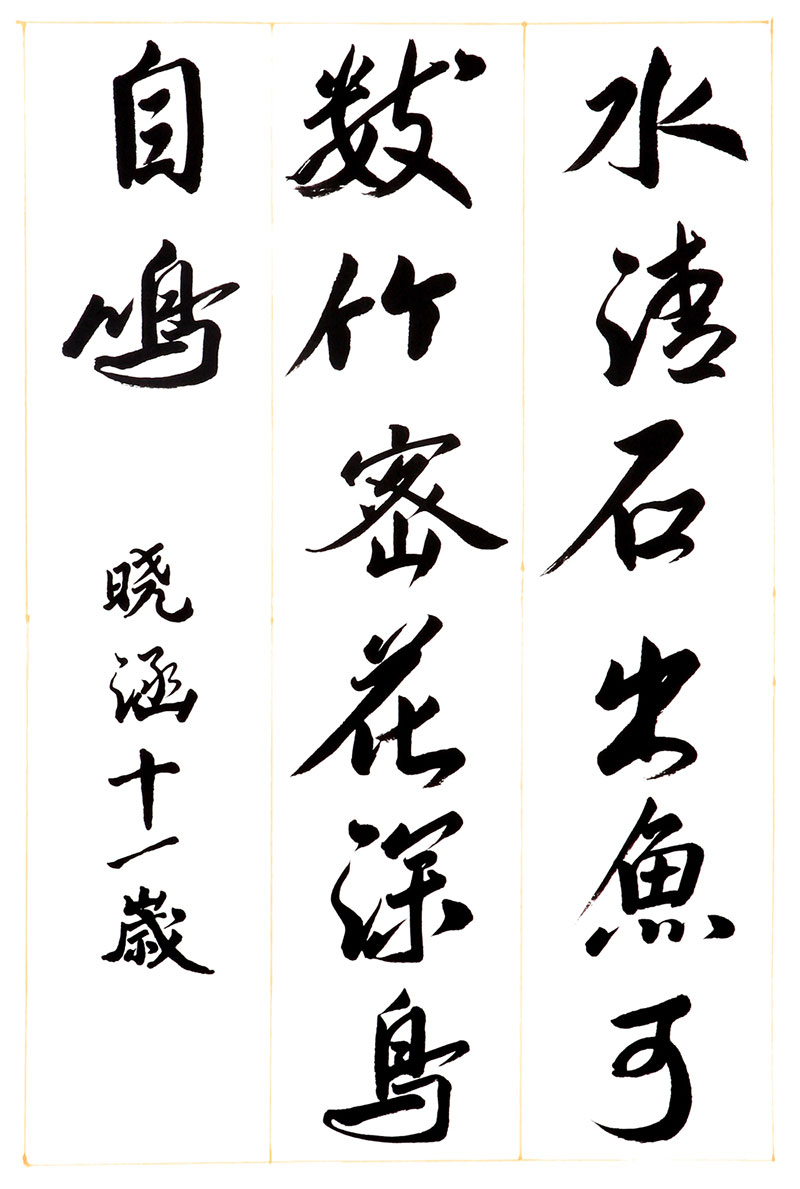 水清石出魚可
数竹密花深鸟
自鸣
晓涵十一歲